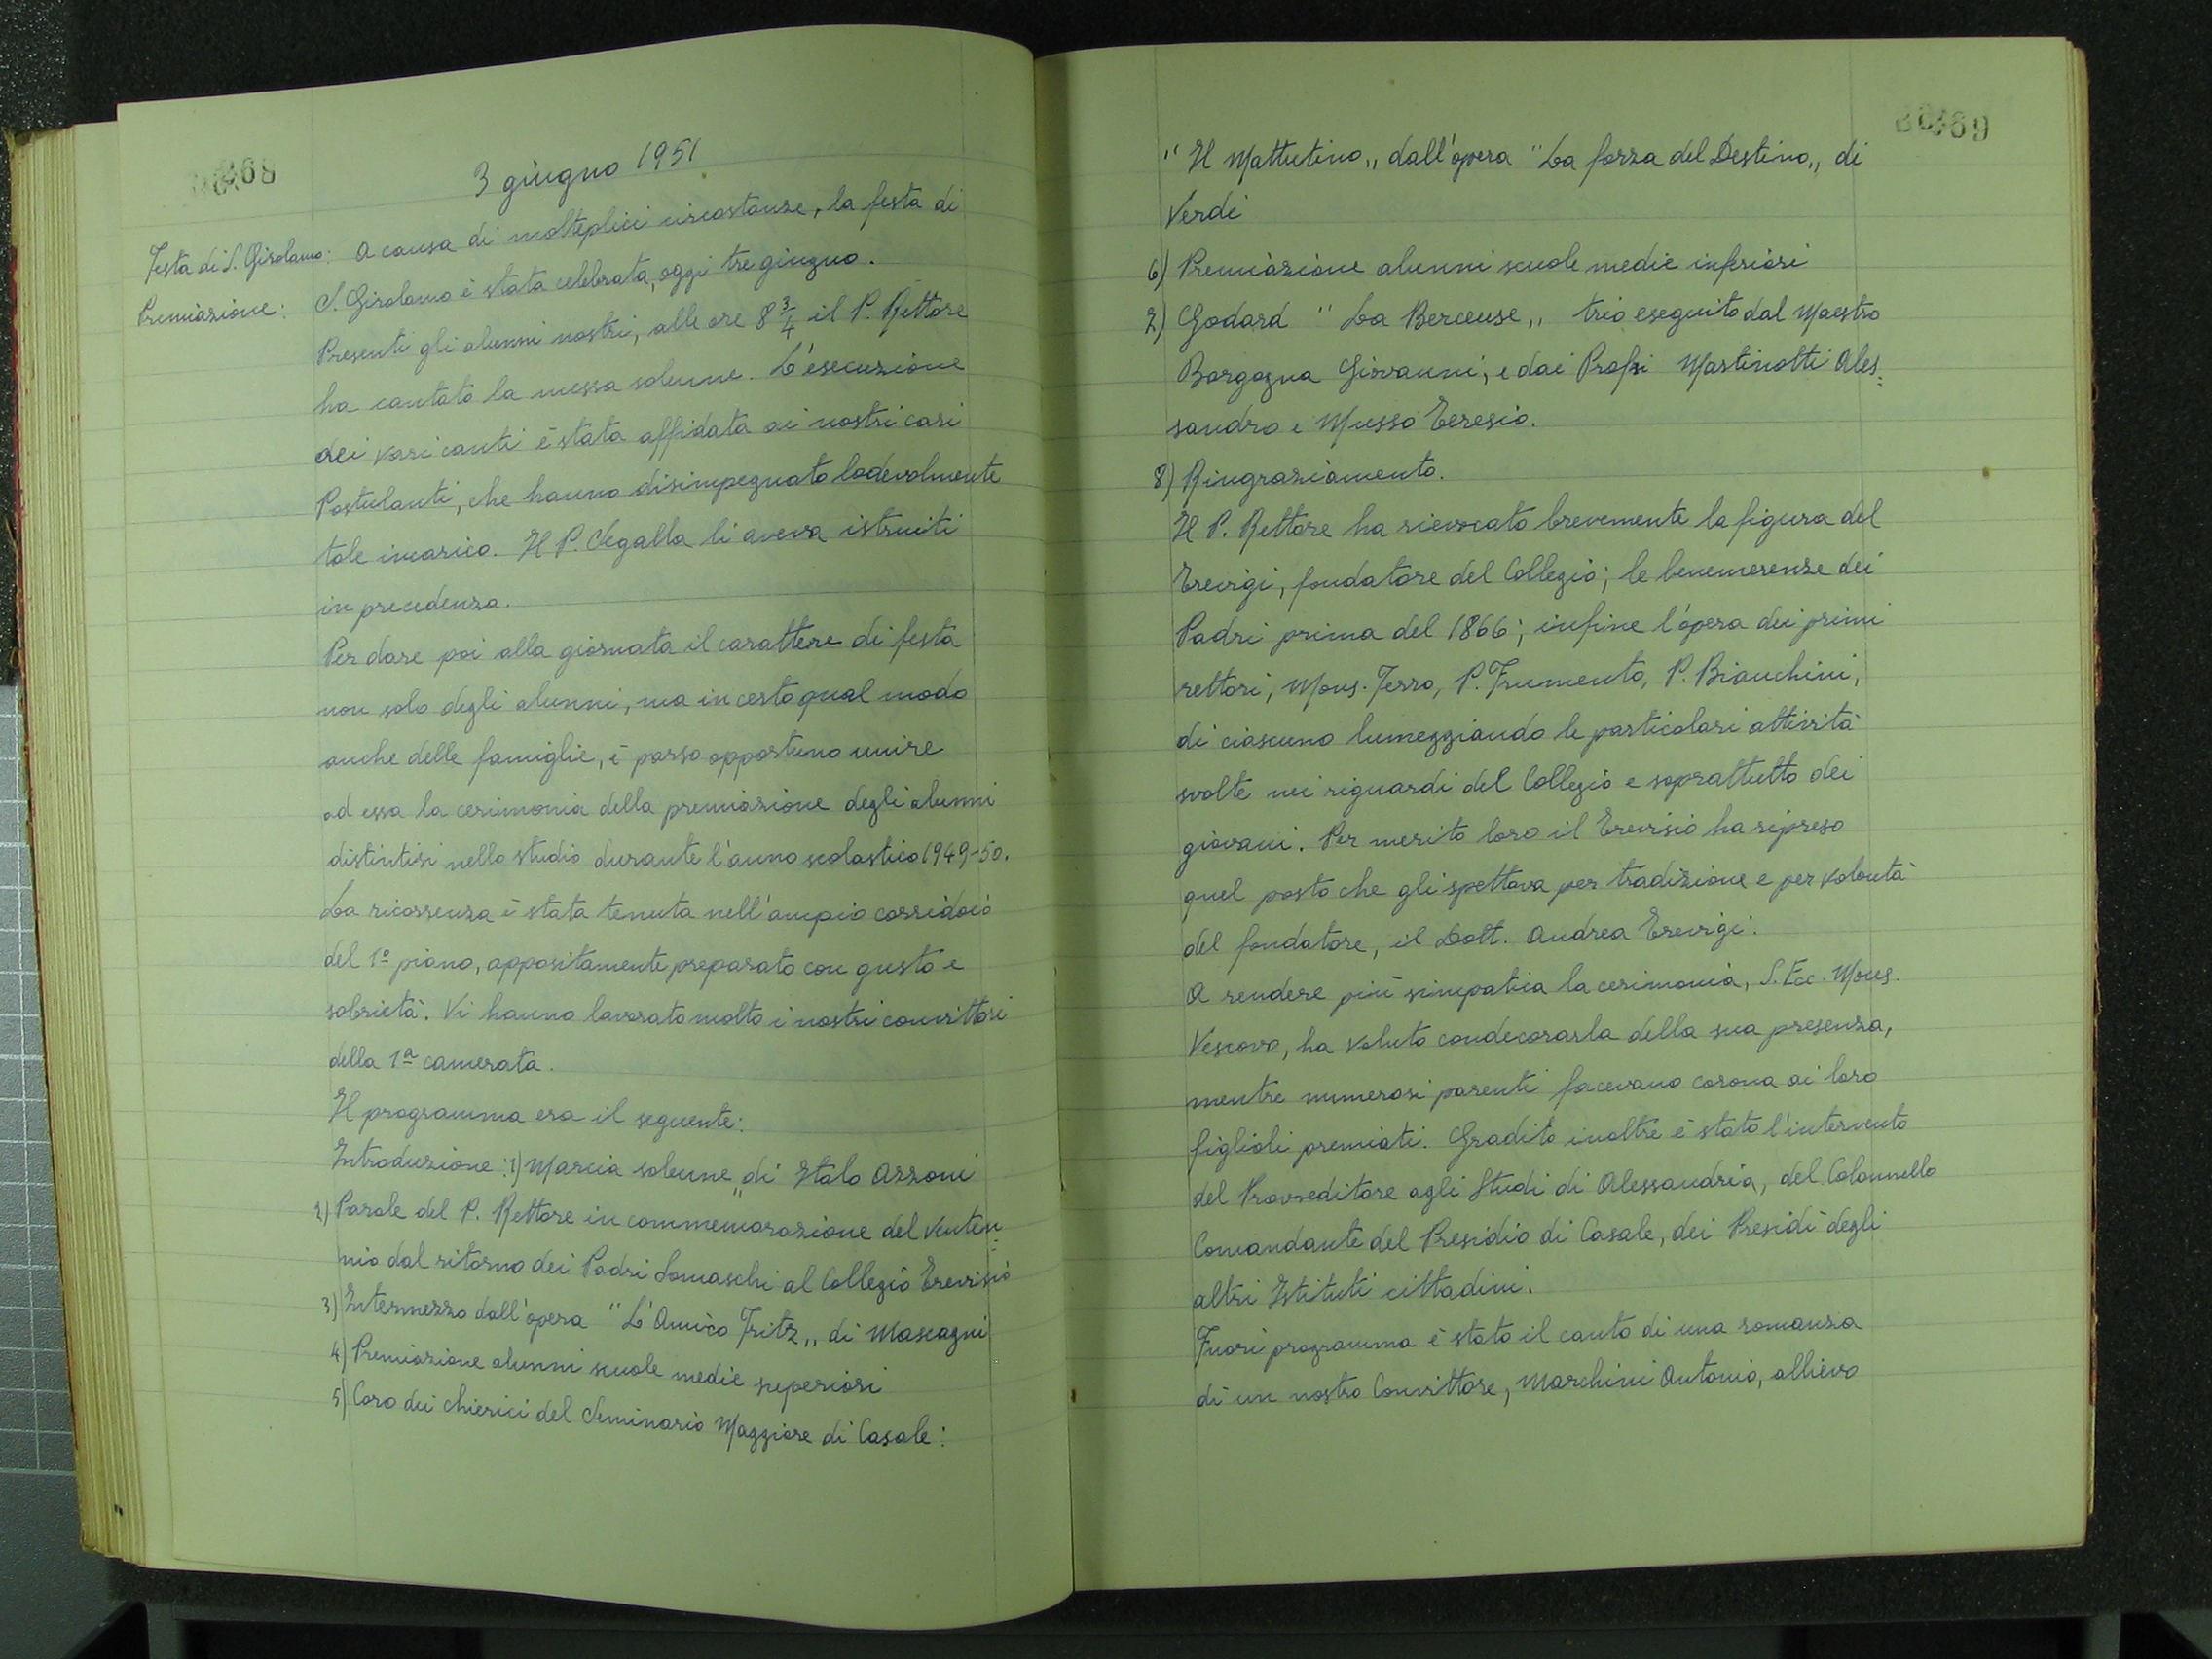 3 giugno 1951
Festa di S. Girolamo: A causa di molteplici circostanze, la festa di
Premiazione: S. Girolamo è stata celebrata, oggi tre giugno.
Presenti gli alunni nostri, alle ore 8 3/4 il P. Rettore
ha cantato la messa solenne. L'esecuzione
dei vari canti è stata affidata ai nostri cari
Postulanti, che hanno disimpegnato lodevolmente
tale incarico. Il P. Segalla li aveva istruiti
in precedenza.
Per dare poi alla giornata il carattere di festa
non solo degli alunni, ma in certo qual modo
anche delle famiglie, è parso opportuno unire
ad essa la cerimonia della premiazione degli alunni
distintisi nello studio durante l'anno scolastico 1949-50.
La ricorrenza è stata tenuta nell'ampio corridoio
del 1º piano, appositamente preparato con gusto e
sobrietà. Vi hanno lavorato molto i nostri convittori
della 1ª camerata.
Il programma era il seguente:
Introduzione: 1) Marcia solenne „ di Italo Azzoni
2) Parole del P. Rettore in commemorazione del venten-
nio dal ritorno dei Padri Somaschi al Collegio Trevisio
3) Intermezzo dall'opera "L'Amico Fritz„ di Mascagni
4) Premiazione alunni scuole medie superiori
5) Coro dei chierici del Seminario Maggiore di Casale:
69
"Il Mattutino„ dall'opera "La forza del Destino„ di
Verdi
6) Premiazione alunni scuole medie inferiori
7) Godard "La Berceuse„ trio eseguito dal Maestro
Borgogna Giovanni, e dai Profsi Martinotti Ales=
sandro e Musso Teresio.
8) Ringraziamento.
Il P. Rettore ha rievocato brevemente la figura del
Trevigi, fondatore del Collegio; le benemerenze dei
Padri prima del 1866; infine l'opera dei primi
rettori, Mons. Ferro, P. Frumento, P. Bianchini,
di ciascuno lumeggiando le particolari attività
svolte nei riguardi del Collegio e soprattutto dei
giovani. Per merito loro il Trevisio ha ripreso
quel posto che gli spettava per tradizione e per volontà
del fondatore, il Dott. Andrea Trevigi.
A rendere più simpatica la cerimonia, S. Ecc. Mons.
Vescovo, ha voluto condecorarla della sua presenza,
mentre numerosi parenti facevano corona ai loro
figlioli premiati. Gradito inoltre è stato l'intervento
del Provveditore agli Studi di Alessandria, del Colonnello
Comandante del Presidio di Casale, dei Presidi degli
altri Istituti cittadini.
Fuori programma è stato il canto di una romanza
di un nostro Convittore, Marchini Antonio, allievo